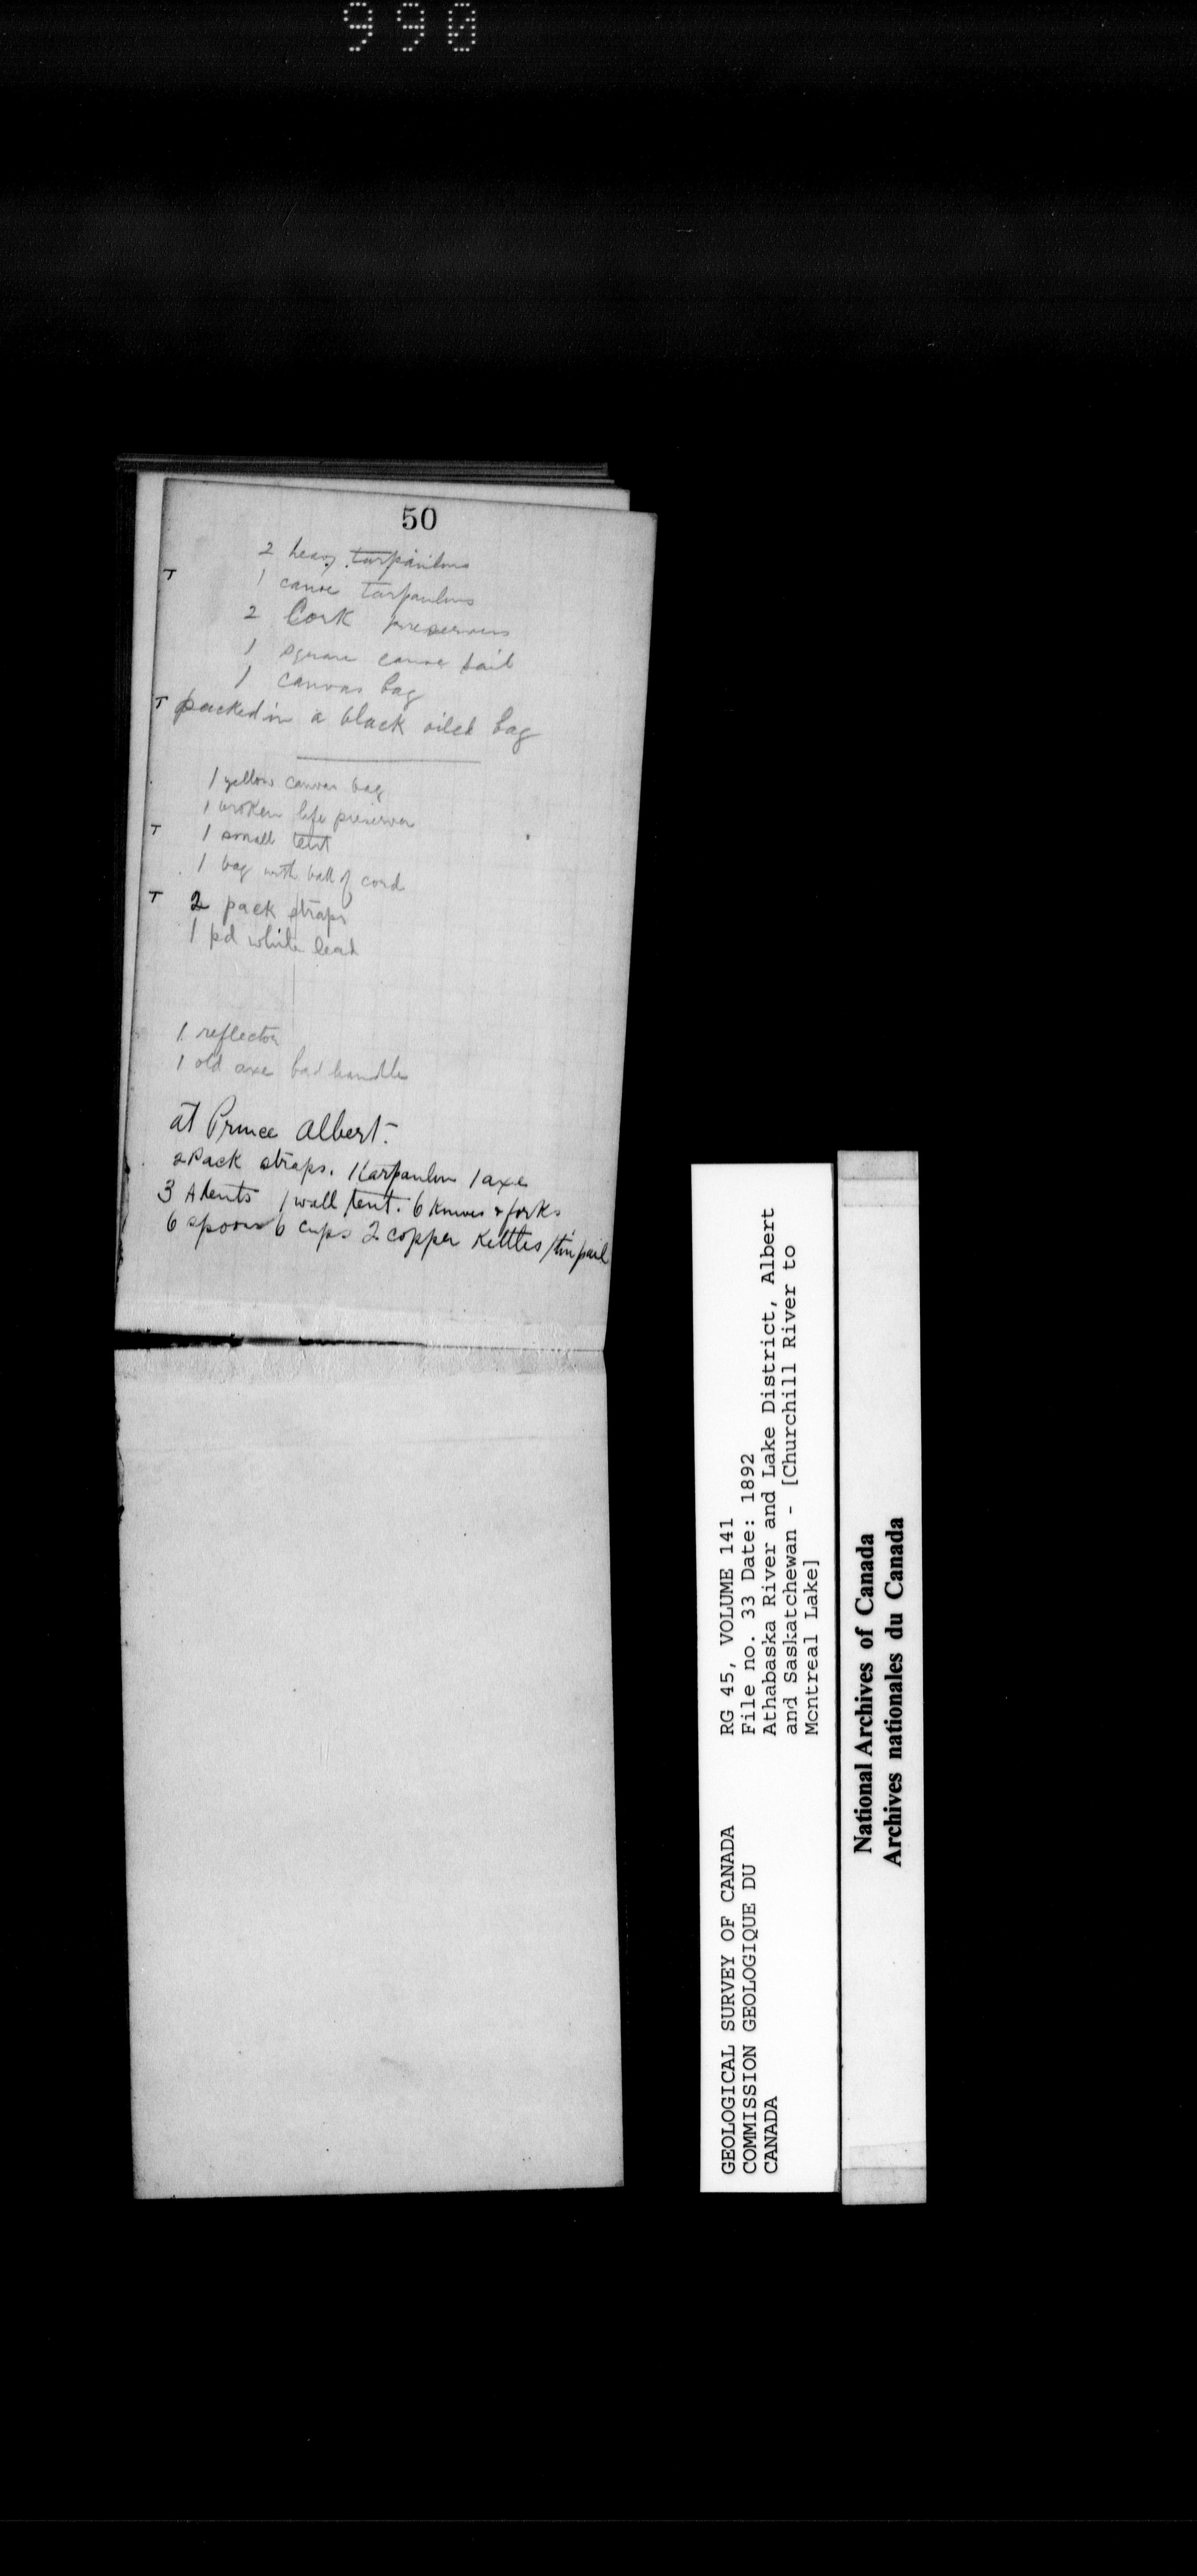 990
50
2 heavy tarpaulins
T 1 canoe tarpaulins
2 Cork preservers
1 square canoe sail
1 canvas bag
T packed in a black oiled bag
1 yellow canvas bag
1 broken life preserver
T 1 small tent
1 bag with ball of cord
T 2 pack straps
1 pd white lead
1 reflector
1 old axe bad handle
at Prince Albert.
2 Pack straps. 1 tarpaulin 1 axe
3 A tents 1 wall tent. 6 knives & forks
6 spoons 6 cups 2 copper Kettles 1 tin pail
GEOLOGICAL SURVEY OF CANADA
COMMISSION GEOLOGIQUE DU
CANADA
RG 45, VOLUME 141
File no. 33 Date: 1892
Athabaska River and Lake District, Albert
and Saskatchewan - [Churchill River to
Montreal Lake]
National Archives of Canada
Archives nationales du Canada